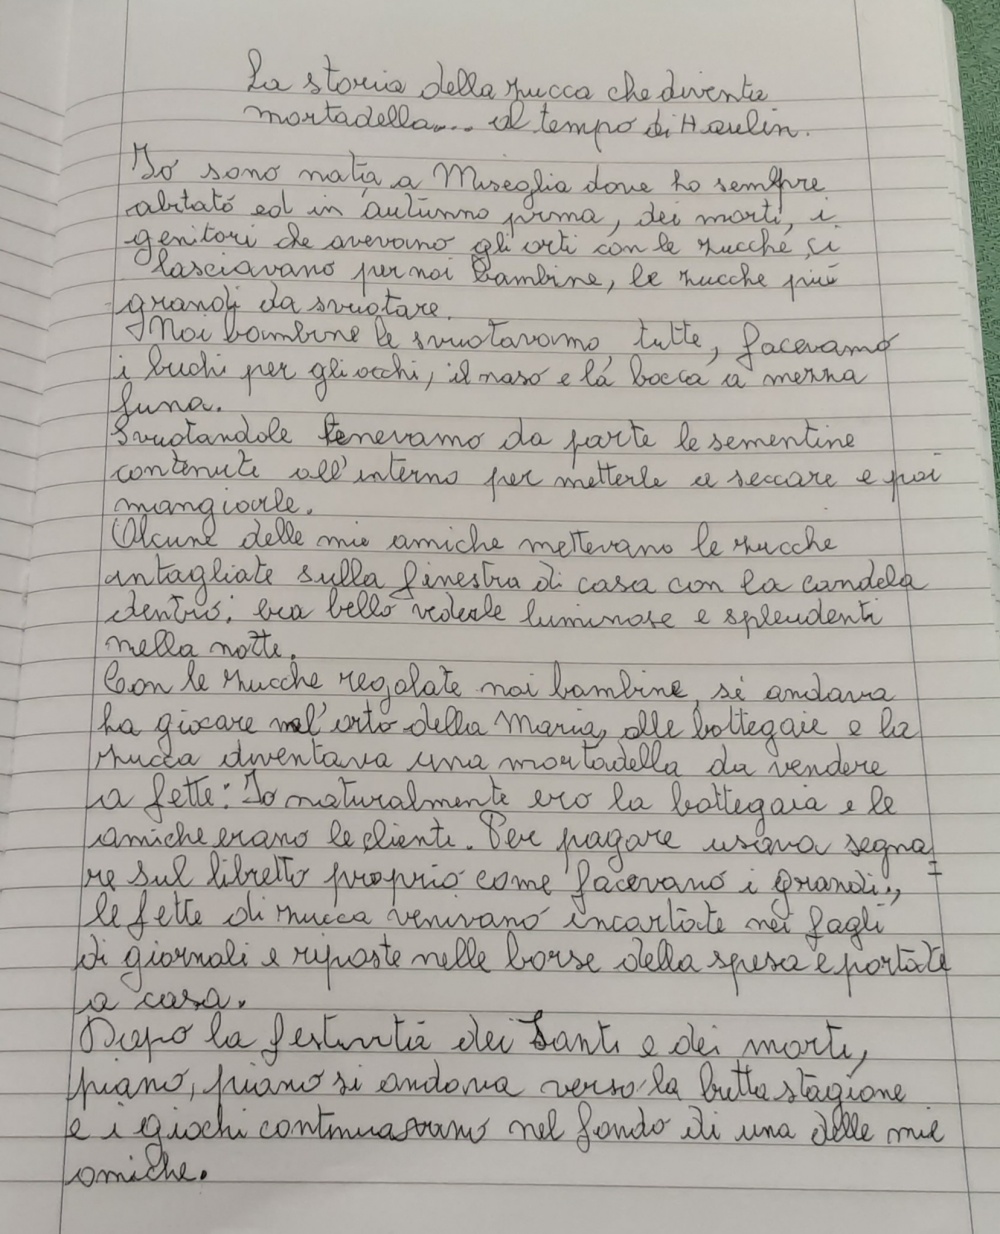 La storia della zucca che diventa
mortadella.... al tempo di Haulin.
Io sono nata a Miseglia dove ho sempre
abitato ed in autunno prima, dei morti, i
genitori che avevano gli orti con le zucche, si
lasciavano per noi bambine, le zucche più
grandi da svuotare.
Noi bambine le svuotavamo tutte, facevamo
i buchi per gli occhi, il naso e la bocca a mezza
luna.
Svuotandole tenevamo da parte le sementine
contenute all'interno per metterle a seccare e poi
mangiarle.
Alcune delle mie amiche mettevano le zucche
antagliate sulla finestra di casa con la candela
dentro; era bello vederle luminose e splendenti
nella notte.
Con le zucche regalate noi bambine, si andava
ha giocare nel'orto della Maria, alle bottegaie e la
zucca diventava una mortadella da vendere
a fette: Io naturalmente ero la bottegaia e le
amiche erano le clienti. Per pagare usava segna
re sul libretto proprio come facevano i grandi.,
le fette di zucca venivano incartate nei fagli
di giornali e riposte nelle borse della spesa e portate
a casa.
Dopo la festività dei Santi e dei morti,
piano, piano si andava verso la brutta stagione
e i giochi continuavano nel fondo di una delle mie
amiche.